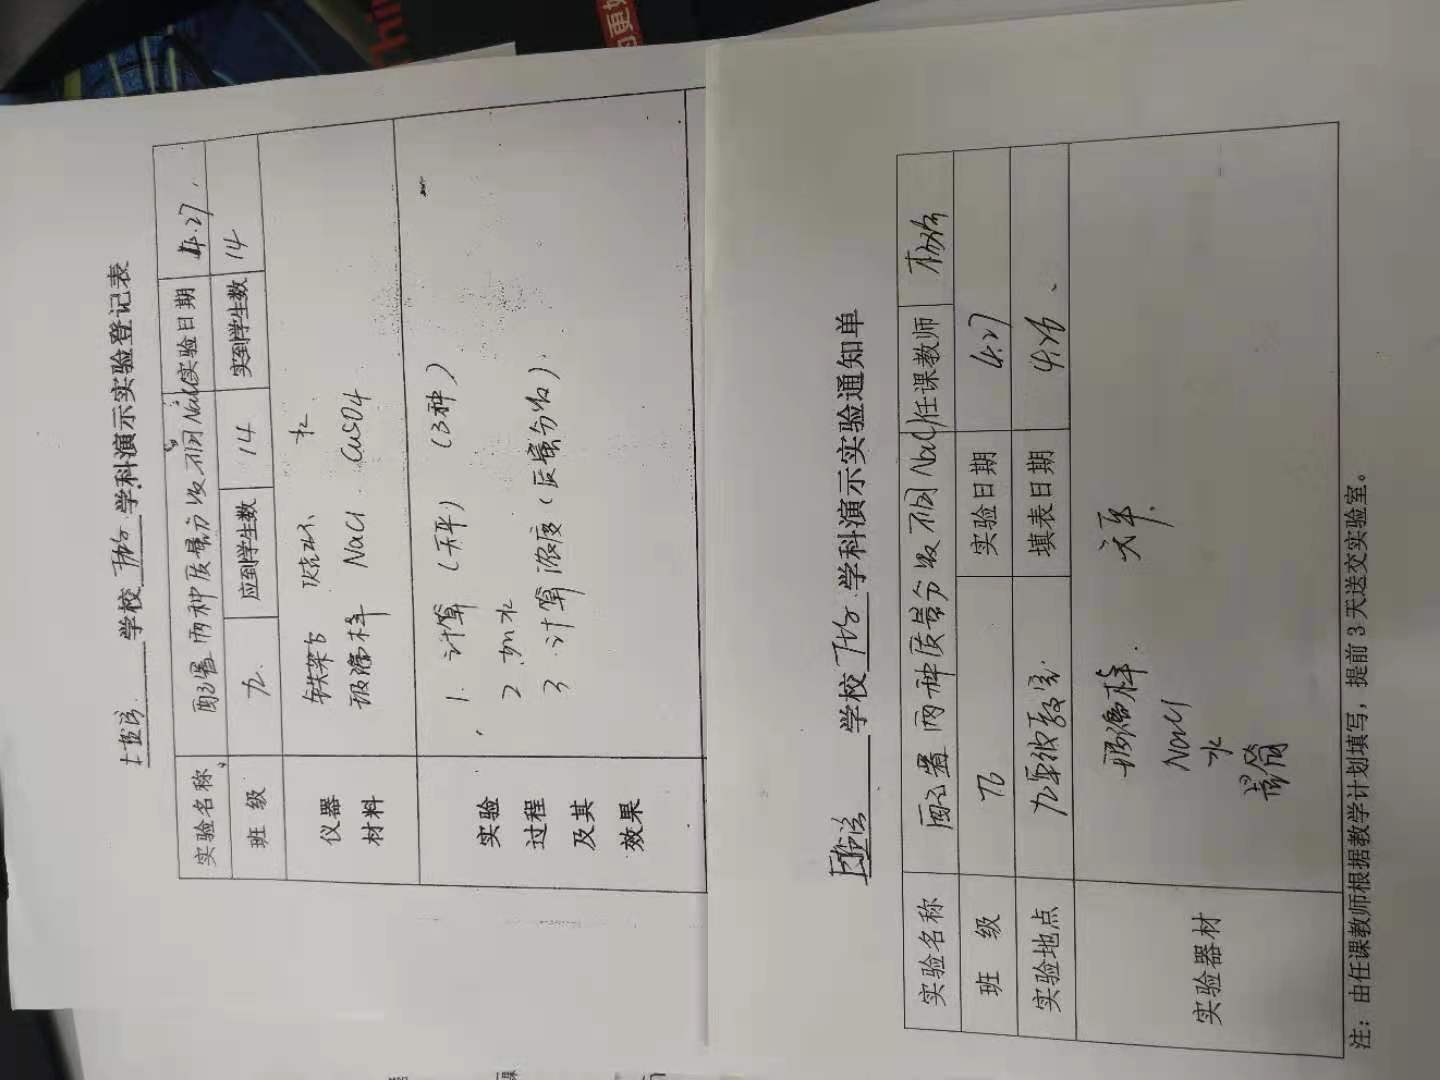 学校 学科演示实验登记表
实验名称 配置两种质量分数不同NaCl 实验日期 4.27.
班 级 九 应到学生数 14 实到学生数 14
仪器 铁架台 烧杯 水
材料 玻璃棒 NaCl CuSO4
实验 1. 计算 (天平) (3种)
过程 2 加水
及其 3. 计算浓度(质量分数).
效果
学校 学科演示实验通知单
实验名称 配置两种质量分数不同NaCl 任课教师
班 级 九 实验日期 4.27
实验地点 九年级教室 填表日期 4.26
实验器材 玻璃棒. 天平.
NaCl
水
量筒
注：由任课教师根据教学计划填写，提前 3 天送交实验室。